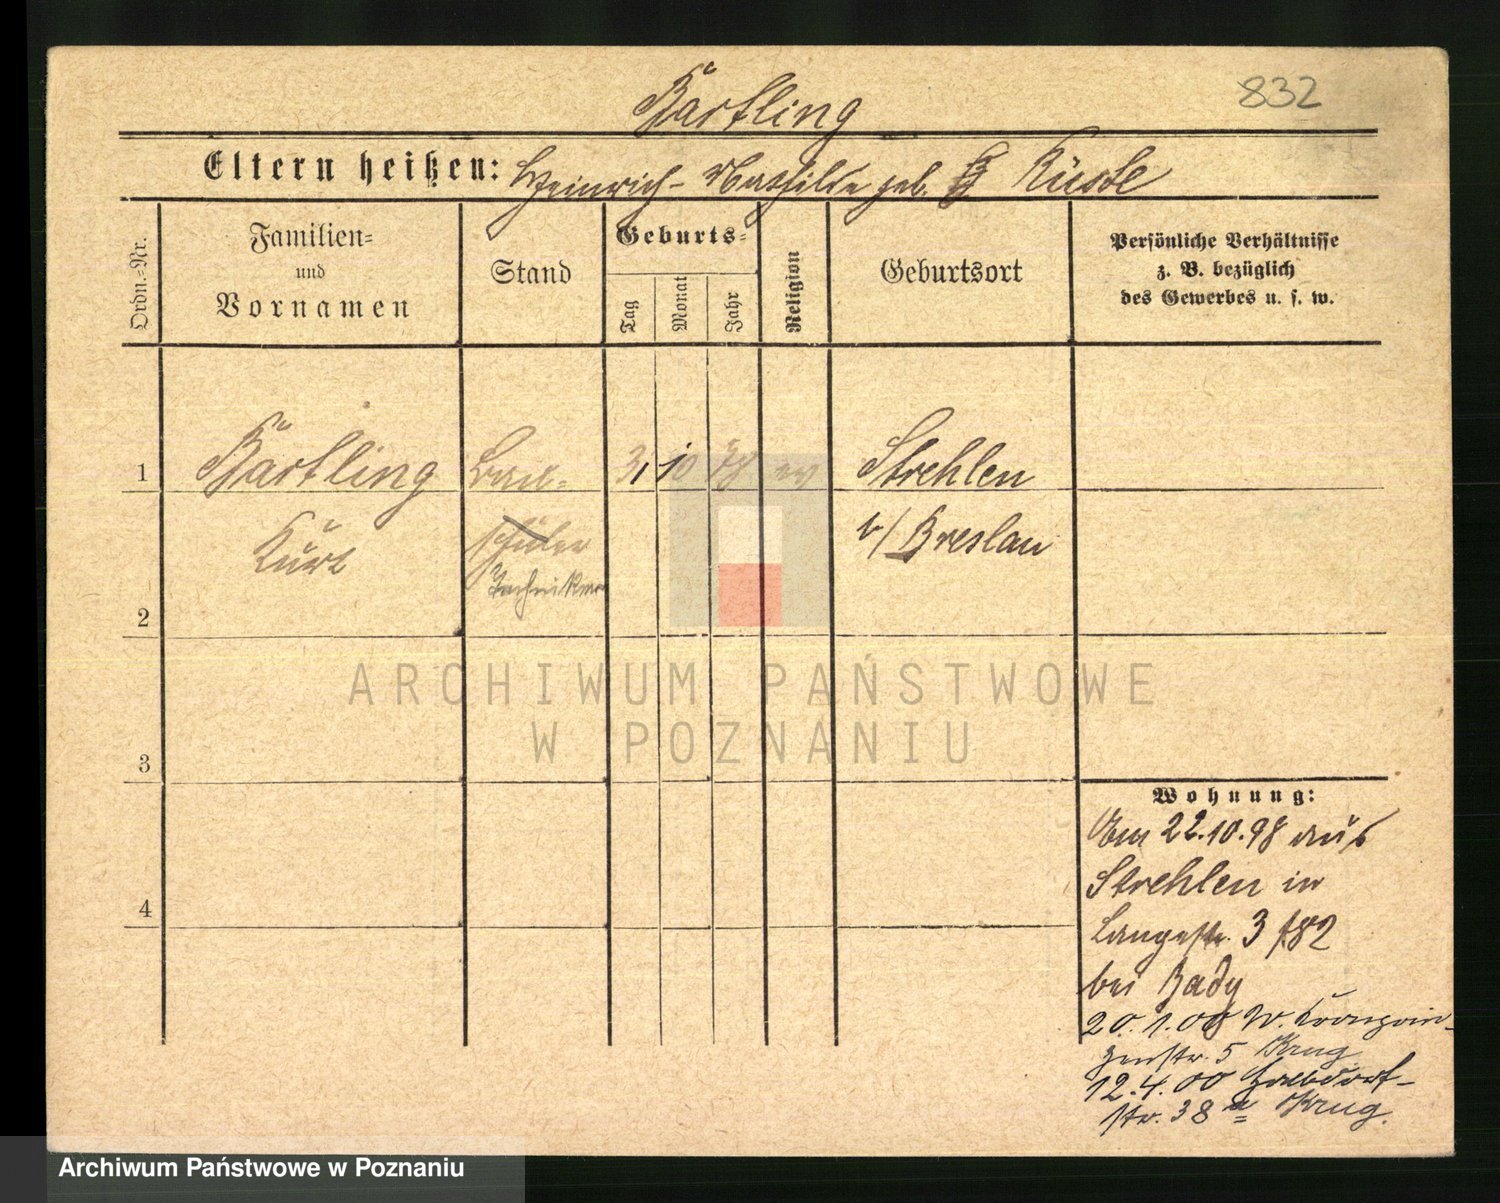 832
Bartling
Eltern heißen: Heinrich - Mathilde geb. Kuste
Ordn.=Nr.
Familien=
und
Vornamen
Stand
Geburts=
Tag
Monat
Jahr
Religion
Geburtsort
Persönliche Verhältnisse
z. B. bezüglich
des Gewerbes u. s. w.
1
Bartling Bau= 31 10 78 ev Strehlen
Kurt schüler b/ Breslau
Techniker
2
ARCHIWUM PAŃSTWOWE
W POZNANIU
3
4
Wohnung:
Am 22.10.98 aus
Strehlen in
Langestr. 3
bei Bady
20.1.00 W. Kronprin-
zenstr. 5 Krug
12.4.00
str. 38a Krug.
Archiwum Państwowe w Poznaniu